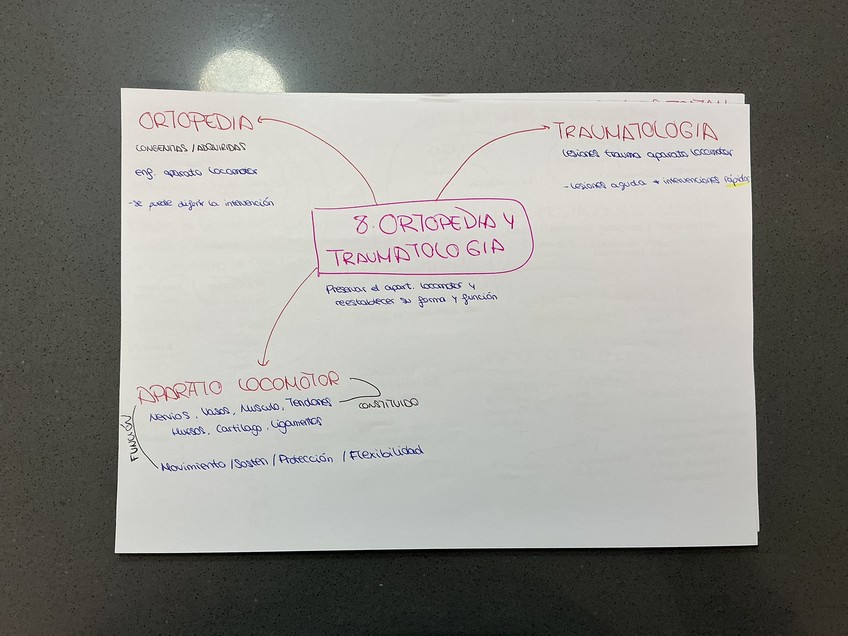 ORTOPEDIA
CONGENITAS / ADQUIRIDAS
enf. aparato locomotor
- se puede diferir la intervención
TRAUMATOLOGIA
Lesiones trauma aparato locomotor
- Lesiones aguda + intervenciones rápidas
8. ORTOPEDIA Y
TRAUMATOLOGIA
Preservar el apart. locomotor y
reestablecer su forma y función
APARATO LOCOMOTOR
Nervios, Vasos, Musculo, Tendones
Huesos, Cartilago, Ligamentos
CONSTITUIDO
FUNCIÓN
Movimiento / Sosten / Protección / Flexibilidad